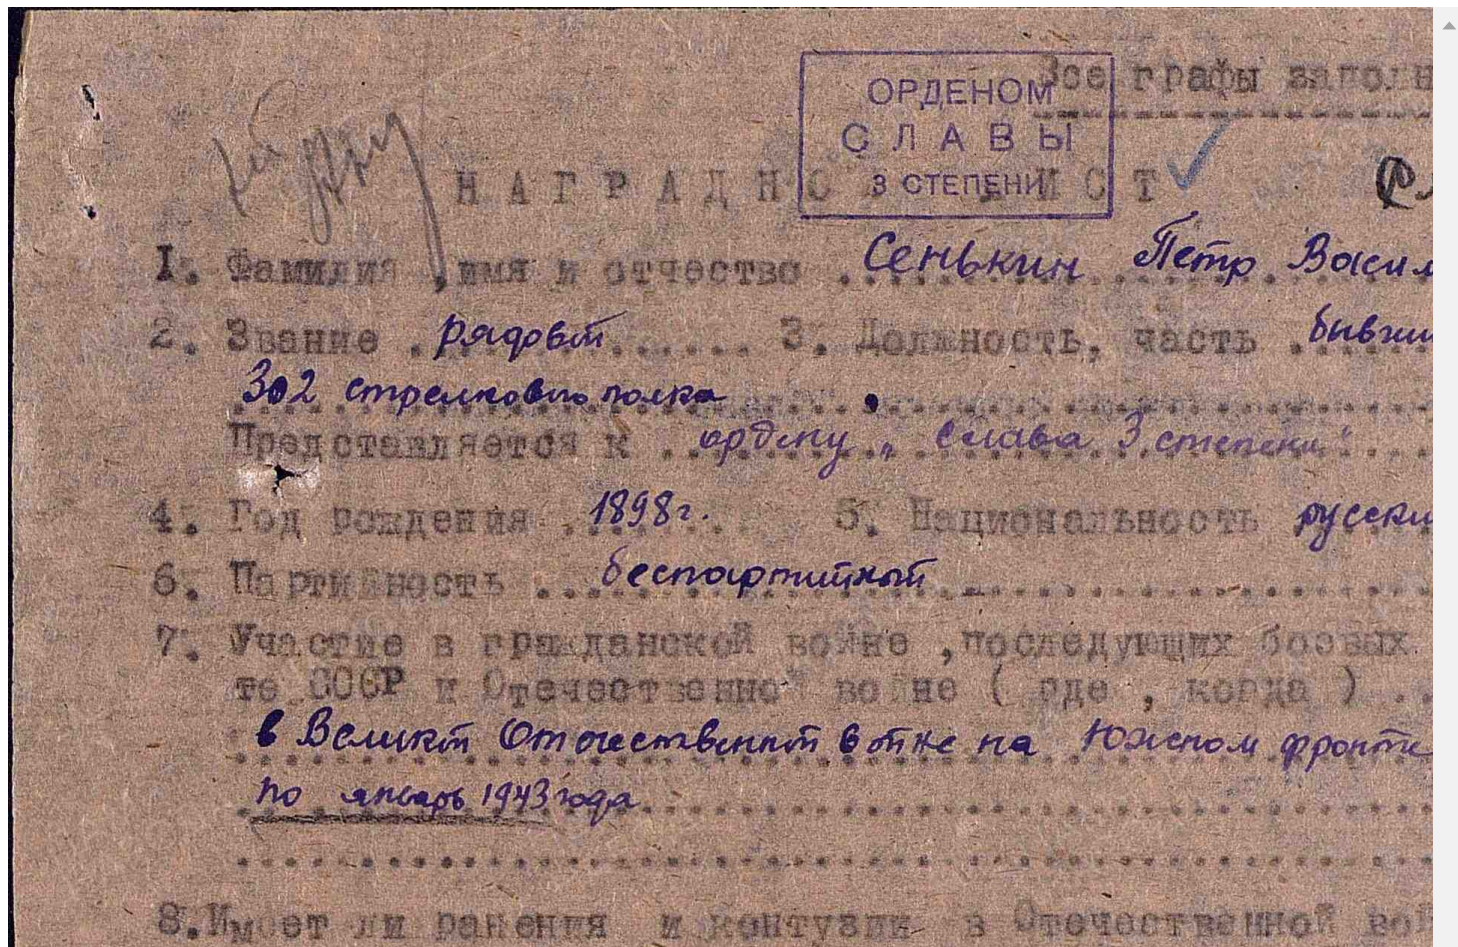 Все графы заполн
ОРДЕНОМ
СЛАВЫ
3 СТЕПЕНИ
НАГРАДНО ЛИСТ
1. Фамилия , имя и отчество Сенькин Петр Васил
2. Звание рядовой 3. Должность, часть бывши
302 стрелкового полка
Представляется к ордену „Слава 3 степени"
4. Год рождения 1898 г. 5. Национальность русски
6. Партийность беспартийный
7. Участие в гражданской войне ,последующих боевых
те СССР и Отечественной войне ( где , когда )
в Великой Отечественной войне на Южном фронте
по январь 1943 года
8. Имеет ли ранения и контузии в Отечественной вой